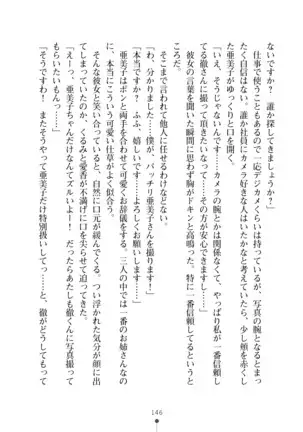 ましょうか？　誰か探してきましょうか？」
仕事で使うこともあるので一応デジカメくらいは持っているが、写真の腕となるとまっ
たく自信はない。誰か社員にカメラ好きな人はいたかなと考えていると、少し顔を赤くし
た亜美子がゆっくりと口を開く。
「いえ、そうじゃないんです……カメラの腕とかではなくて、やっぱり私が一番信頼し
てる徹さんに、撮って頂きたいなって……その方が安心できますし……」
彼女の言葉を聞いた瞬間に思わず胸がドキンと高鳴った。特に一番信頼してるってと
ころだ。
そこまで言われて他人に任せるわけにはいかない。
「わ、分かりました……僕が、バッチリ亜美子さんを撮ります！」
「本当ですか？　ふふ、嬉しいです……よろしくお願いします」
亜美子はポンと両手を合わせて可愛くお辞儀をする。三人の中では一番のお姉さんなの
に、本当にこういう可愛い仕草がよく似合う。
そんな彼女と笑い合っていると、自然に口元が緩んでくる。つい浮かれた気分が顔に出
てしまっていたのか、くるみと愛香が不満げに口を尖らせて徹に迫ってきた。
「えーっ、亜美子ちゃんだけなんてズルいよー！　だったらあたしも徹くんに写真撮って
もらいたいもんっ！」
「そうですわ！　またそうやって亜美子だけ特別扱いしてっ……と、徹がどうしてもって
146